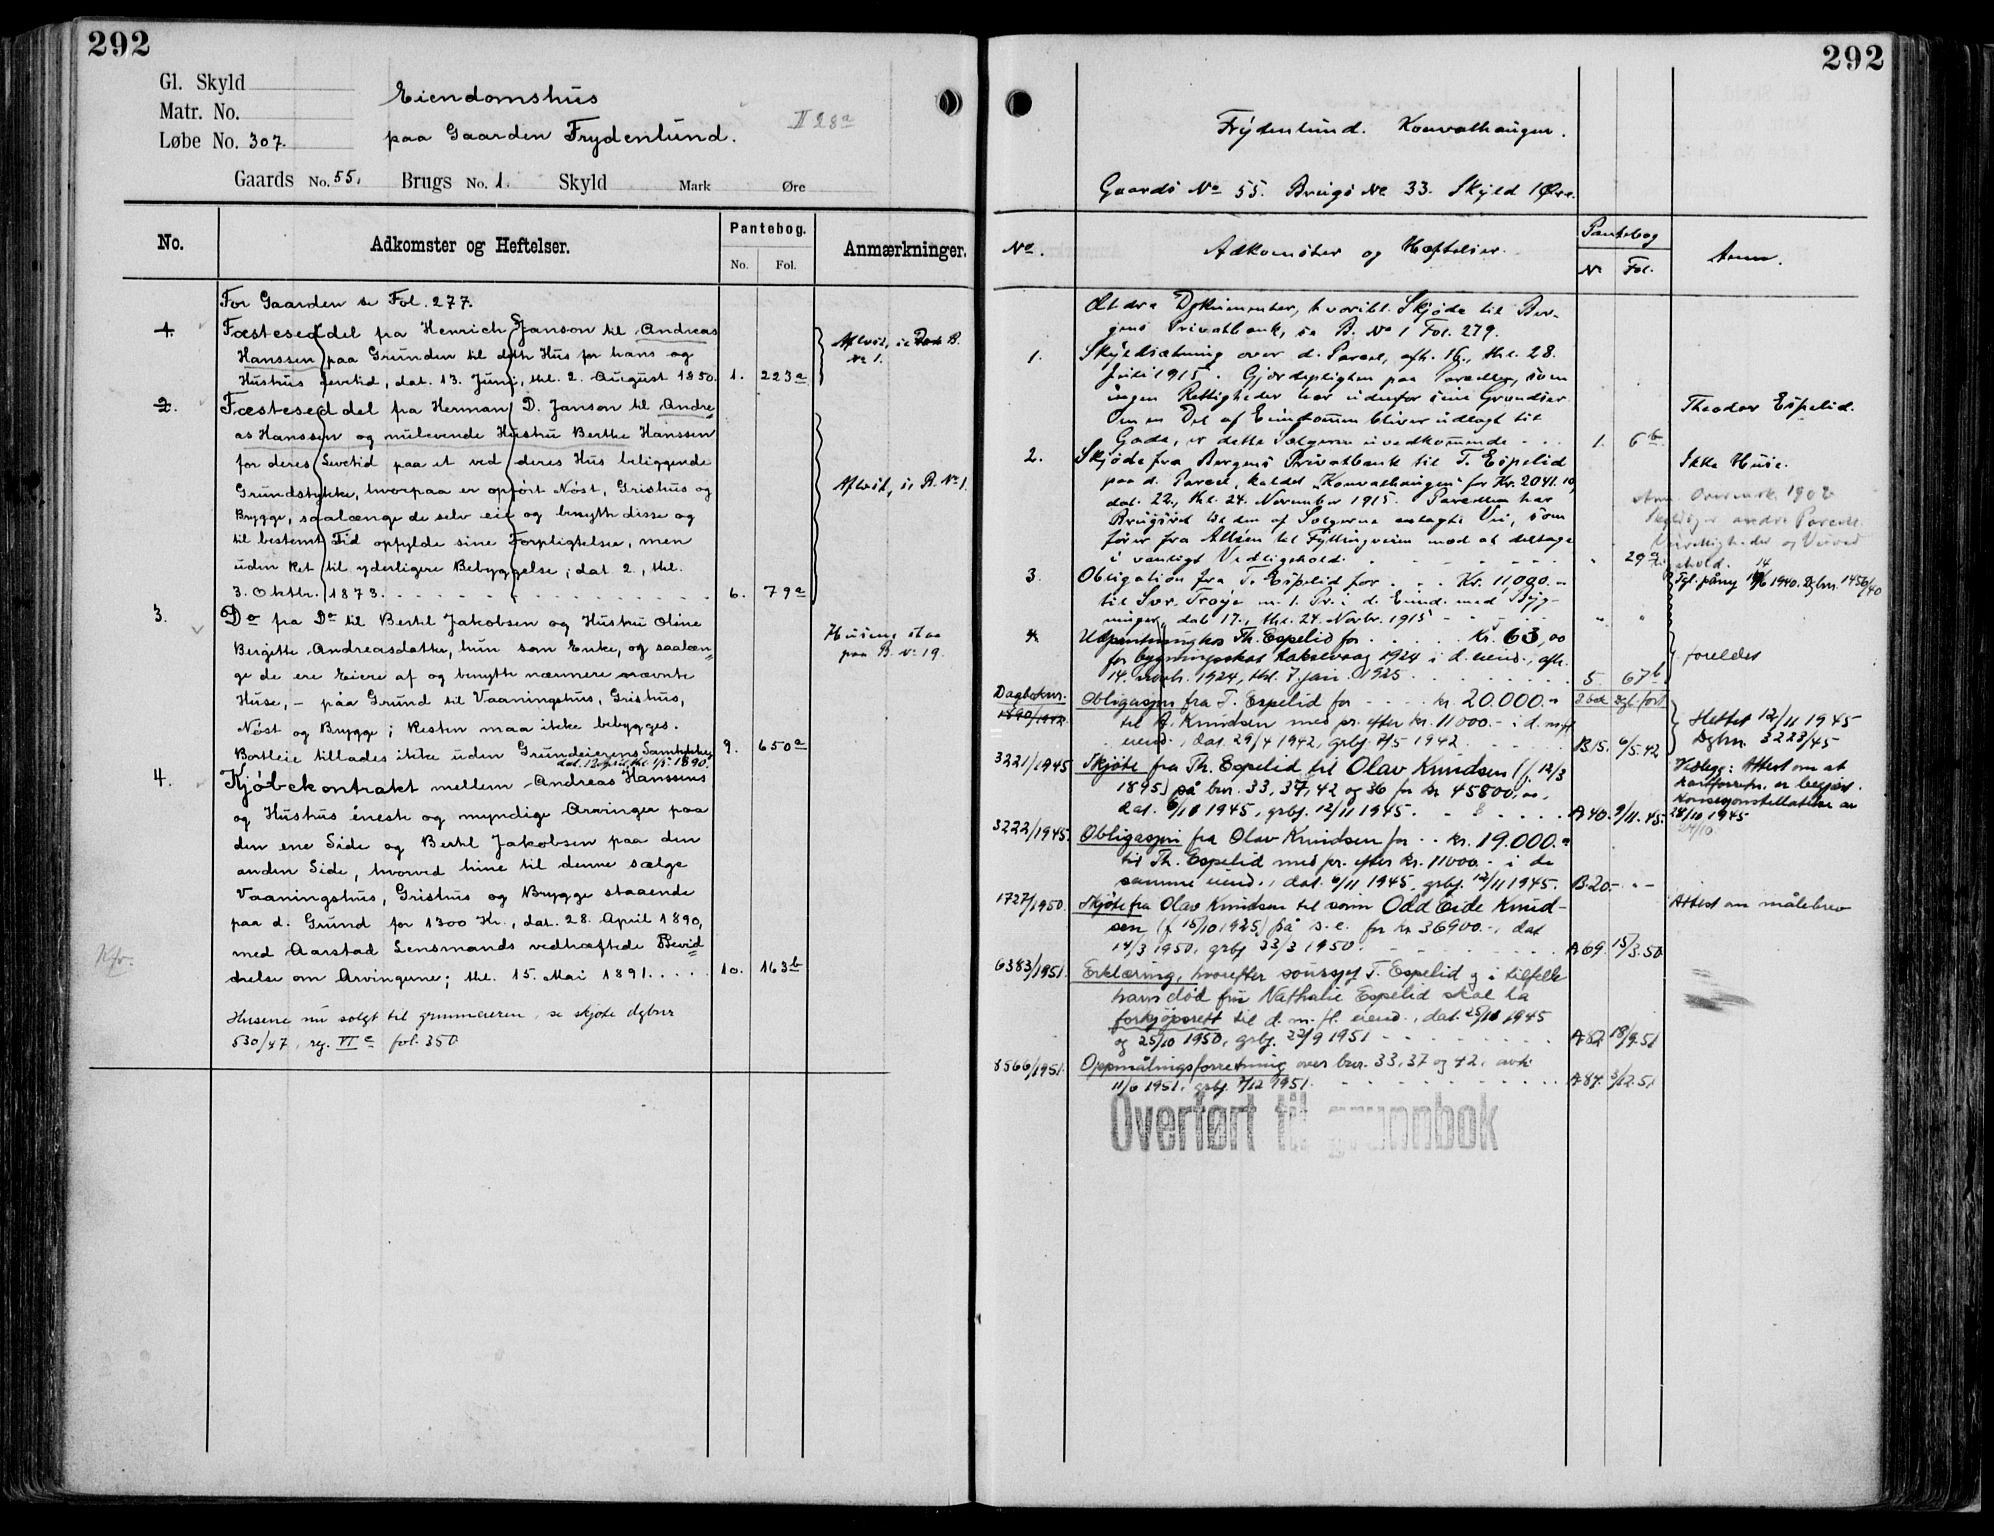 292
Gl. Skyld
Matr. No.
Løbe No. 307.
Eiendomshus
paa Gaarden Frydenlund.
II 28a
Gaards No. 55, Brugs No. 1. Skyld Mark Øre
No. Adkomster og Heftelser. Pantebog. No. Fol. Anmærkninger.
For Gaarden se Fol. 277.
1. Fæsteseddel fra Henrich Janson til Andreas
Hanssen paa Grunden til deth Hus for hans og
Hustrus Levetid, dat. 13. Juni, thl. 2. August 1850. 1. 223a
Aflæst, se B.
No 1.
2. Fæsteseddel fra Herman D. Janson til Andre-
as Hanssen og nulevende Hustru Berthe Hanssen
for deres Levetid paa et ved deres Hus beliggende
Grundstykke, hvorpaa er opført Nøst, Grishus og
Brygge, saalænge de selv eie og benytte disse og
til bestemt Tid opfylde sine Forpligtelser, men
uden Ret til yderligere Bebyggelse; dat. 2., thl.
3. Oktbr. 1873. 6. 79a
Aflæst, se B. No 1.
3. Do fra Do til Bertil Jakobsen og Hustru Oline
Bergitte Andreasdatter, hun som Enke, og saalæn-
ge de ere Eiere af og benytte nærmere nævnte
Huse, – paa Grund til Vaaningshus, Grishus,
Nøst og Brygge; Resten maa ikke bebygges.
Bortleie tillades ikke uden Grundeierens Samtykke,
1890. 9. 650a
Husene staa
paa B. No 19.
4. Kjøbekontrakt mellem Andreas Hanssens
og Hustrus eneste og myndige Arvinger paa
den ene Side og Bertil Jakobsen paa den
anden Side, hvorved hine til denne sælge
Vaaningshus, Grishus og Brygge staaende
paa d. Grund for 1300 Kr., dat. 28. April 1890,
med Aarstad Lensmands vedhæftede Bevid-
nelse om Arvingerne; thl. 15. Mai 1891. 10. 163b
Kfr.
Husene nu solgt til grunneieren, se skjøte dgbnr
530/47, reg. VI c fol. 350
292
Frydenlund. Konvalhaugen.
Gaards No 55. Brugs No 33. Skyld 1 Øre.
No. Adkomster og Heftelser. Pantebog No Fol. Anm.
Ældre Dokumenter, hvoribl. Skjøde til Ber-
gens Privatbank, se B. No 1 Fol. 279.
1. Skyldsætning over d. Parcel, afh. 16., thl. 28.
Juli 1915. Gjerdepligten paa Parcellen, som
ingen Rettigheder har udenfor sine Grændser.
Om en Del af Eiendommen bliver udlagt til
Gade, er dette Sælgeren uvedkommende 1. 6b
Theodor Espelid.
2. Skjøde fra Bergens Privatbank til T. Espelid
paa d. Parcel, kaldet "Konvalhaugen" for Kr. 2041.10,
dat. 22., thl. 24. November 1915. Parcellen har
Brugsret til den af Sælgerne anlagte Vei, som
fører fra Alléen til Fyllingveien mod at deltage
i vanligt Vedligehold. " 29a
Ikke Huse.
3. Obligation fra T. Espelid for Kr. 11,000.–
til Sor. Troye m. 1. Pr. i d. Eiend. med Byg-
ninger, dat. 17., thl. 24. Novbr. 1915 " "
Tgl. påny 14/6 1940. Dgbnr. 1456/40
4. Utpantning hos Th. Espelid for Kr. 63,00
for bygningsskat Laksevaag 1924 i d. eiend., afh.
14. novbr. 1924, thl. 7. jan. 1925 5. 67b
foreldet
Dagboknr.
1890/1942 Obligasjon fra T. Espelid for kr. 20.000.–
til A. Knudsen med pr. efter kr. 11000.– i d. m.fl.
eiend., dat. 29/4 1942, grbf. 7/5 1942. B15. 6/5.42
Slettet 12/11 1945
Dgbnr. 3223/45
3221/1945 Skjøte fra Th. Espelid til Olav Knudsen (f. 12/3
1895) på bnr. 33, 37, 42 og 36 for kr 45800,00,
dat. 6/10 1945, grbf. 12/11 1945. A40. 9/11.45.
Vedlegg: Attest om at
kartforretn. er begjært.
Konsesjonstillatelse av
24/10 1945
3222/1945. Obligasjon fra Olav Knudsen for kr. 19.000.–
til Th. Espelid med pr. efter kr. 11000.– i de
samme eiend., dat. 6/11 1945, grbf. 12/11 1945. B.20. " –
1727/1950. Skjøte fra Olav Knudsen til sønn Odd Eide Knud-
sen (f 15/10 1925) på s. e. for kr 36900.–, dat
14/3 1950, grbf 23/3 1950. A69. 15/3.50
Attest om målebrev
6383/1951. Erklæring, hvorefter sousjef T. Espelid og i tilfelle
hans død fru Nathalie Espelid skal ha
forkjøpsrett til d. m. fl. eiend., dat. 25/10 1945
og 25/10 1950, grbf. 22/9 1951 A82 18/9.51
8566/1951. Oppmålingsforretning over bnr. 33, 37 og 42, avh.
11/6 1951, grbf. 7/12 1951. A87. 3/12.51
Overført til grunnbok